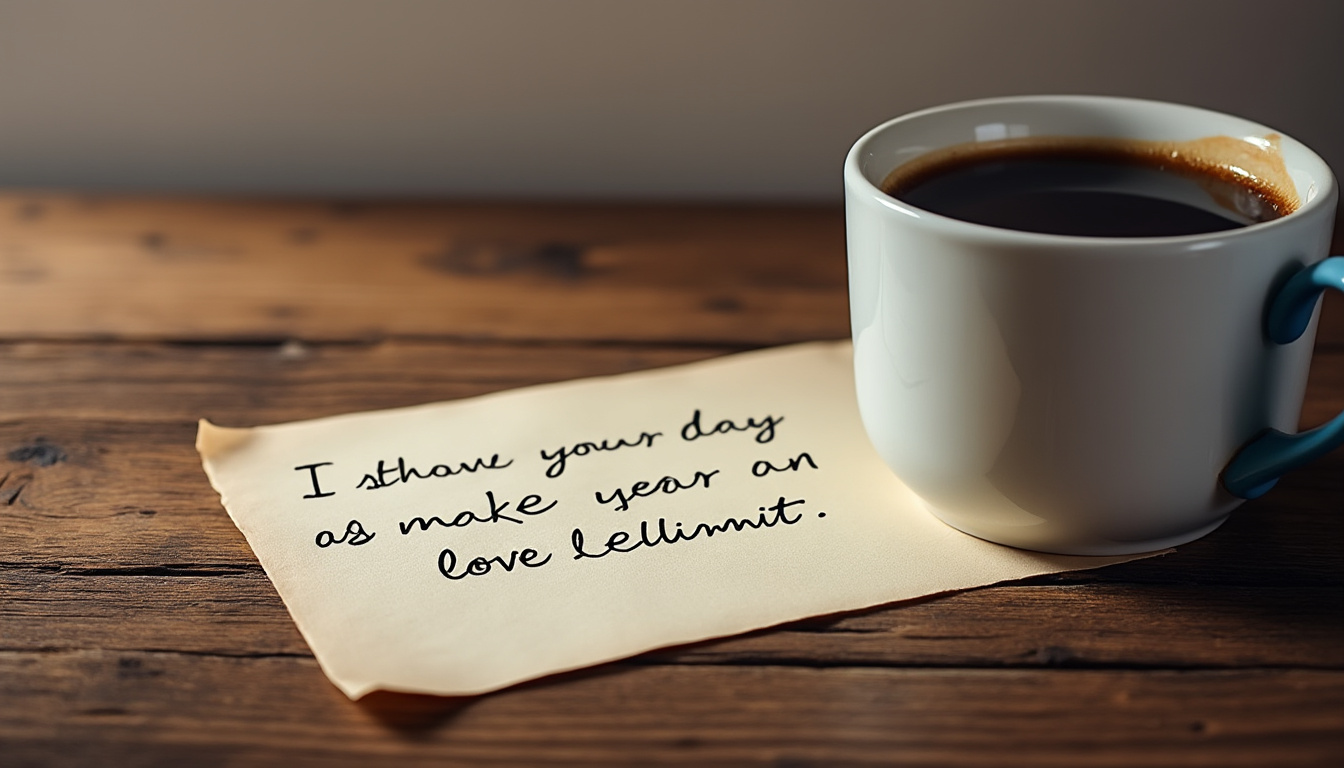 I sthave your day
as make year an
love lellimnit.